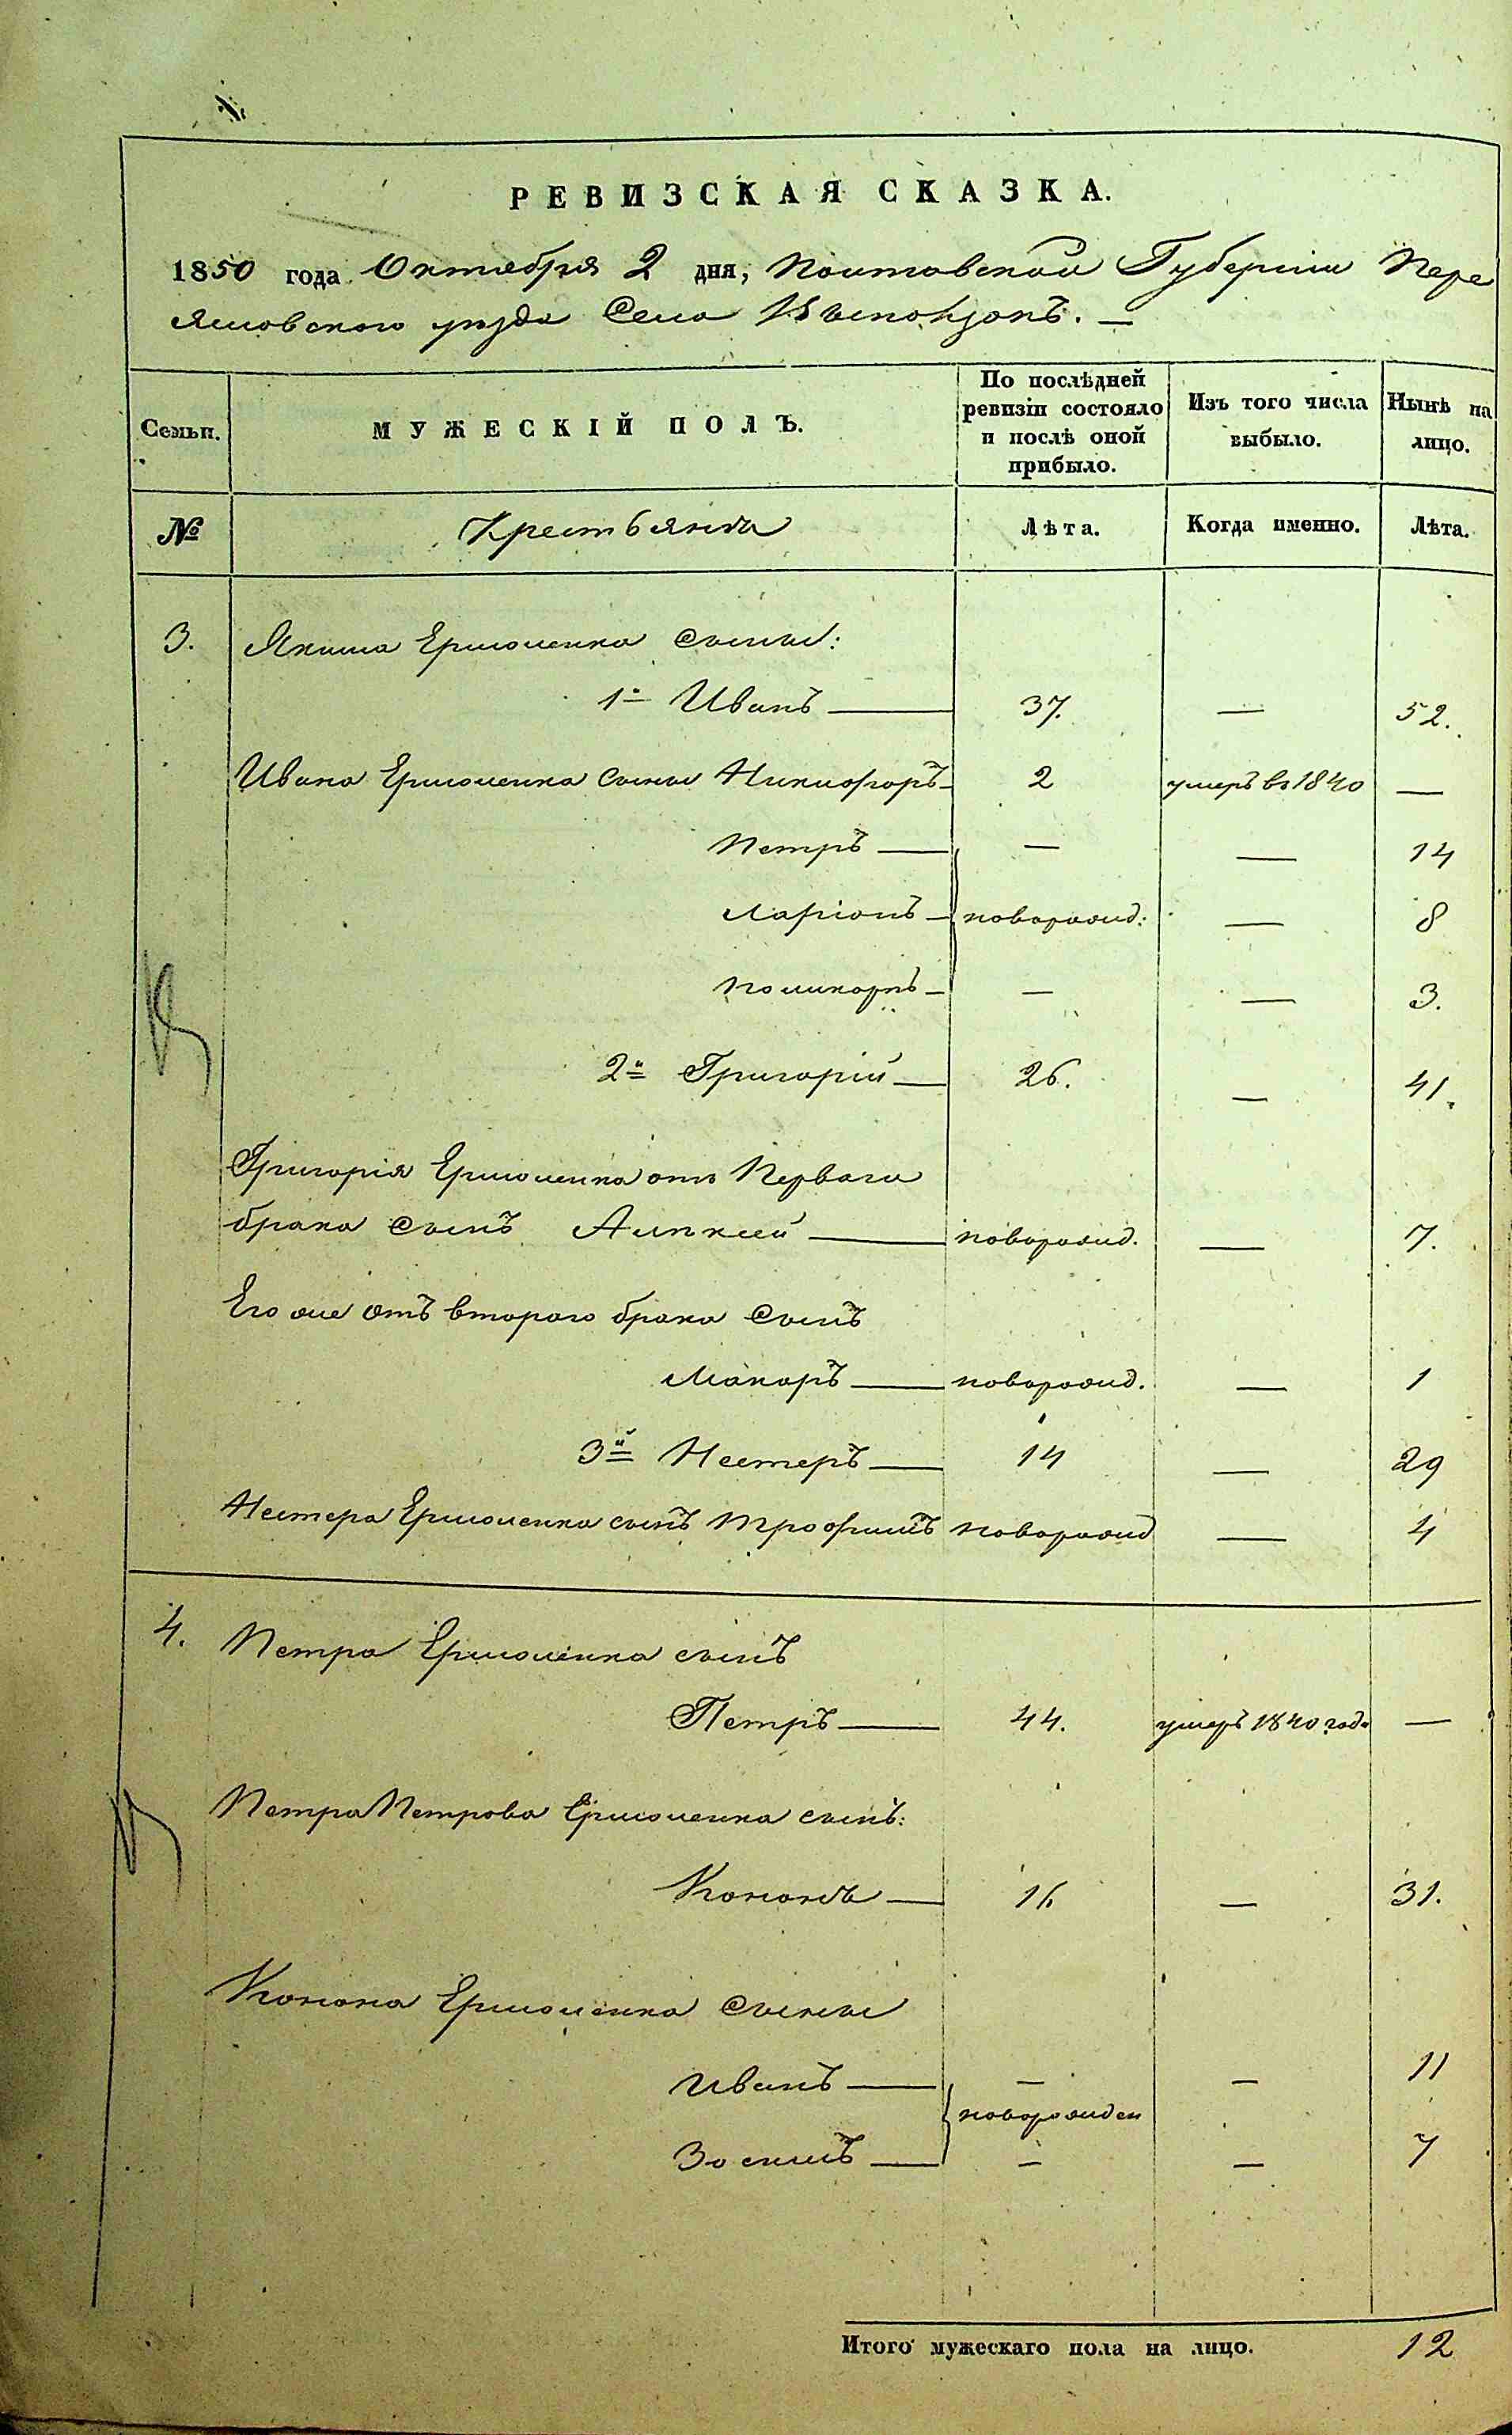 РЕВИЗСКАЯ СКАЗКА.
1850 года Октября 2 дня, Полтавской Губерніи Пере
яславского уѣзда Села
Семьи. МУЖЕСКІЙ ПОЛЪ. По послѣдней ревизіи состояло и послѣ оной прибыло. Изъ того числа выбыло. Нынѣ на лицо.
№ Крестьянъ Лѣта. Когда именно. Лѣта.
3. Якима Ермоленка сыны:
1й Иванъ 37. — 52.
Ивана Ермоленка сыны Никифоръ 2 умеръ въ 1840 —
Петръ — — 14
Ларіонъ новорожд: — 8
Поликарпъ — — 3.
2й Григорій 26. — 41.
Григорія Ермоленка отъ Перваго
брака сынъ Алексей новорожд. — 7.
Его же отъ втораго брака сынъ
Макаръ новорожд. — 1
3й Нестеръ 14 — 29
Нестера Ермоленка сынъ Трофимъ новорожд — 4
4. Петра Ермоленка сынъ
Петръ 44. умеръ 1840 года —
Петра Петрова Ермоленка сынъ:
Кононъ 16 — 31.
Конона Ермоленка сыны
Иванъ — — 11
новорожден
Зосимъ — — 7
Итого мужескаго пола на лицо. 12